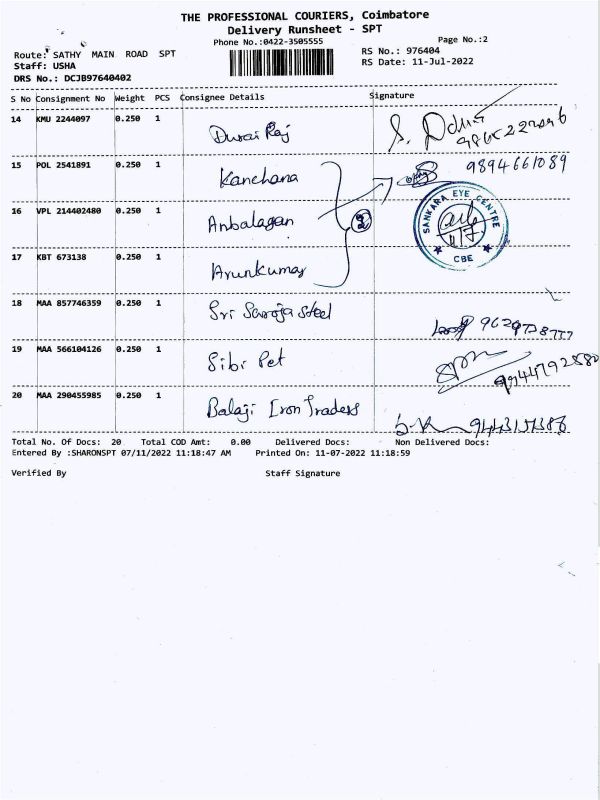 THE PROFESSIONAL COURIERS, Coimbatore
Delivery Runsheet - SPT
Phone No.:0422-3505555
Page No.:2
Route: SATHY MAIN ROAD SPT
RS No.: 976404
Staff: USHA
RS Date: 11-Jul-2022
DRS No.: DCJB97640402
S No Consignment No Weight PCS Consignee Details Signature
14 KMU 2244097 0.250 1
Durai Raj
15 POL 2541891 0.250 1 9894661089
Kanchana
16 VPL 214402480 0.250 1
Anbalagan
SANKARA EYE CENTRE
CBE
17 KBT 673138 0.250 1
Arunkumar
18 MAA 857746359 0.250 1
Sri Saroja Steel
19 MAA 566104126 0.250 1
Sibi Pet
20 MAA 290455985 0.250 1
Balaji Iron Traders
Total No. Of Docs: 20 Total COD Amt: 0.00 Delivered Docs: Non Delivered Docs:
Entered By :SHARONSPT 07/11/2022 11:18:47 AM Printed On: 11-07-2022 11:18:59
Verified By Staff Signature